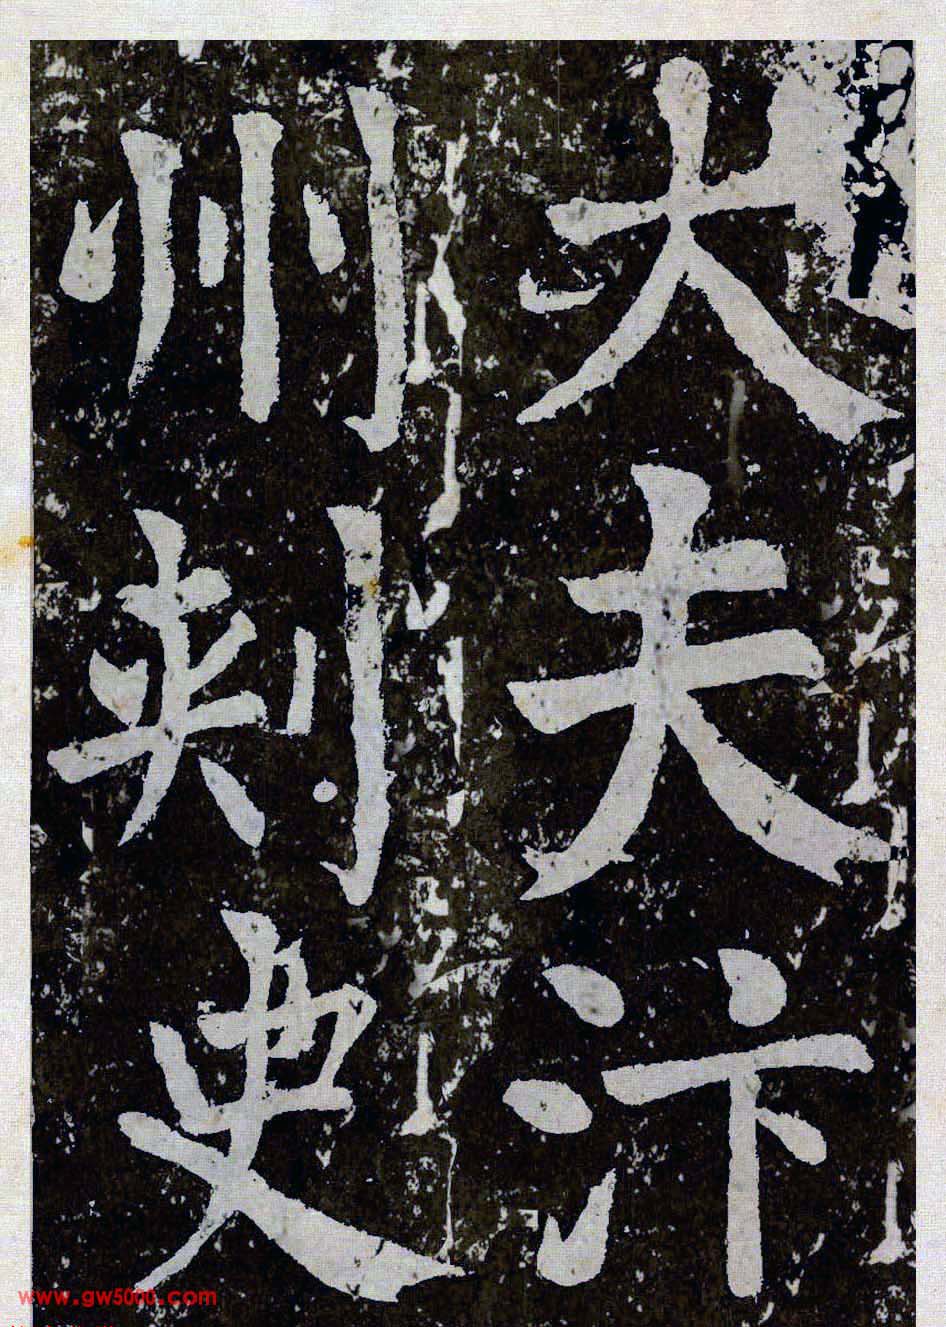 大夫汴
州刺史
www.gw5000.com